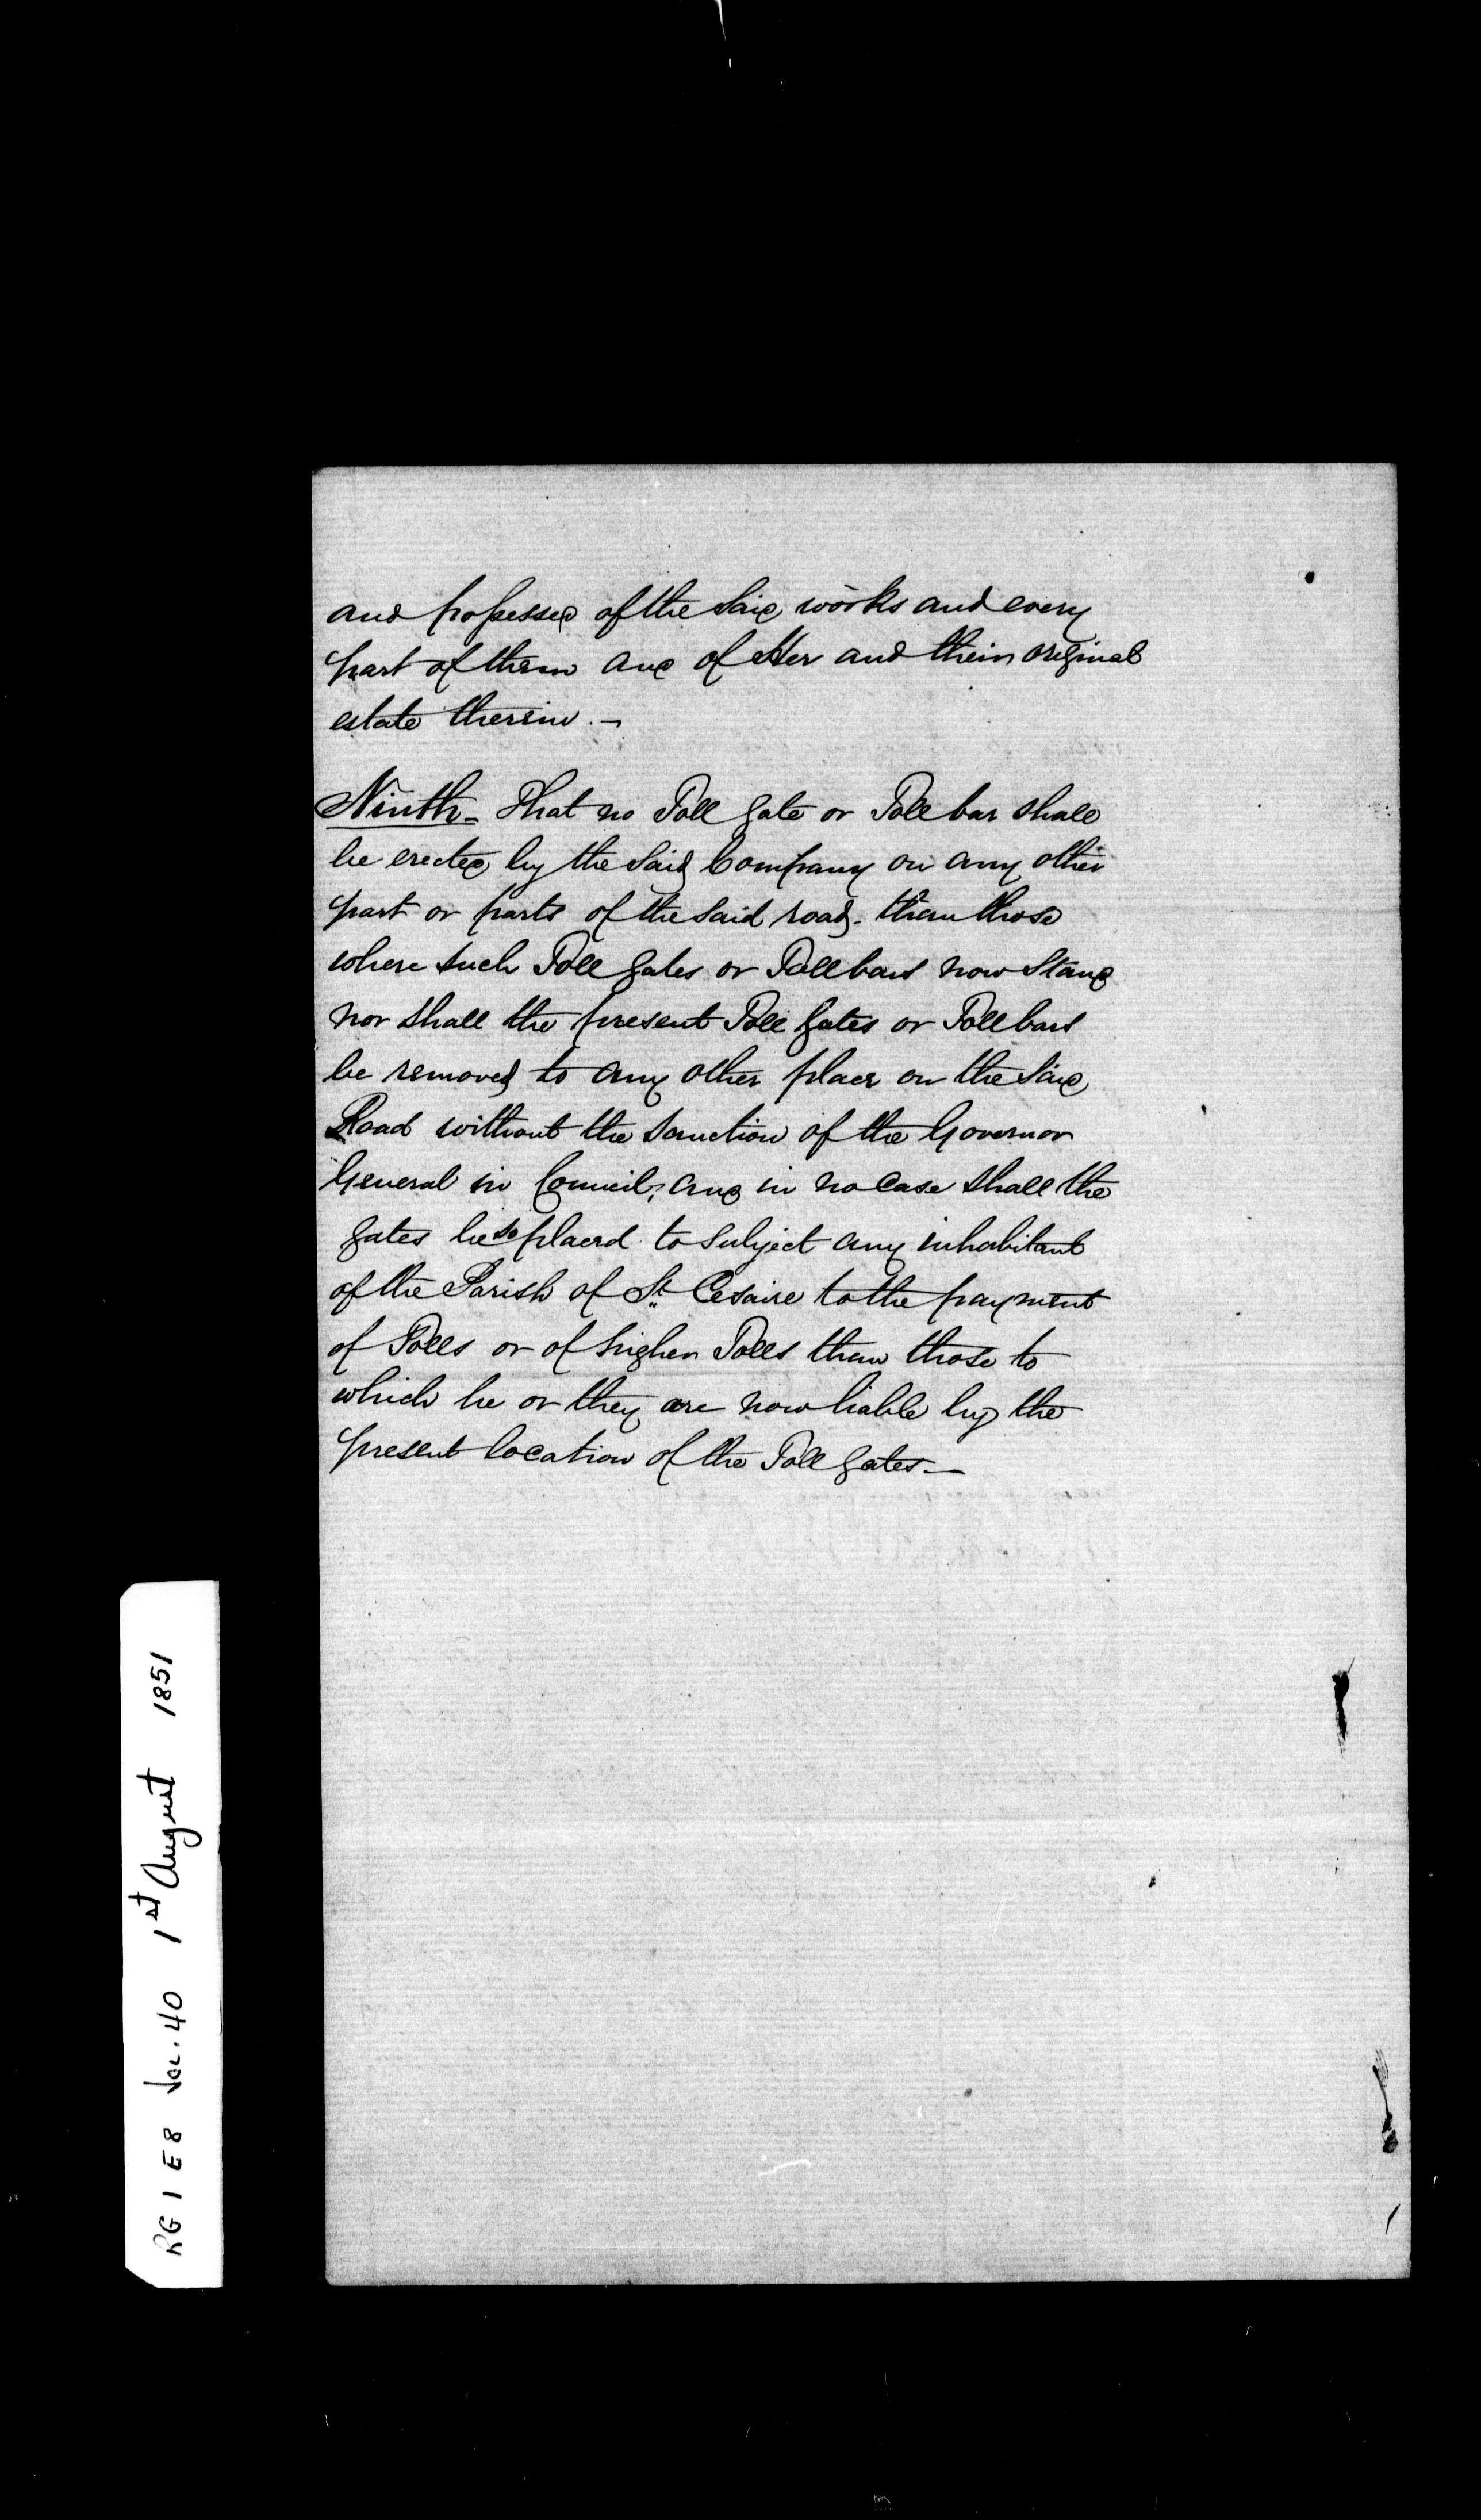 and possessed of the said works and every
part of them and of Her and their original
estate therein. —
Ninth - That no Toll gate or Toll bar shall
be erected by the said Company on any other
part or parts of the said road - than those
where such Toll gates or Toll bars now stand
nor shall the present Toll gates or Toll bars
be removed to any other place on the said
Road without the sanction of the Governor
General in Council, and in no case shall the
gates be so placed to subject any inhabitant
of the Parish of St Cesaire to the payment
of Tolls or of higher Tolls than those to
which he or they are now liable by the
present location of the Toll gates —
RG 1 E8 Vol. 40 1st August 1851